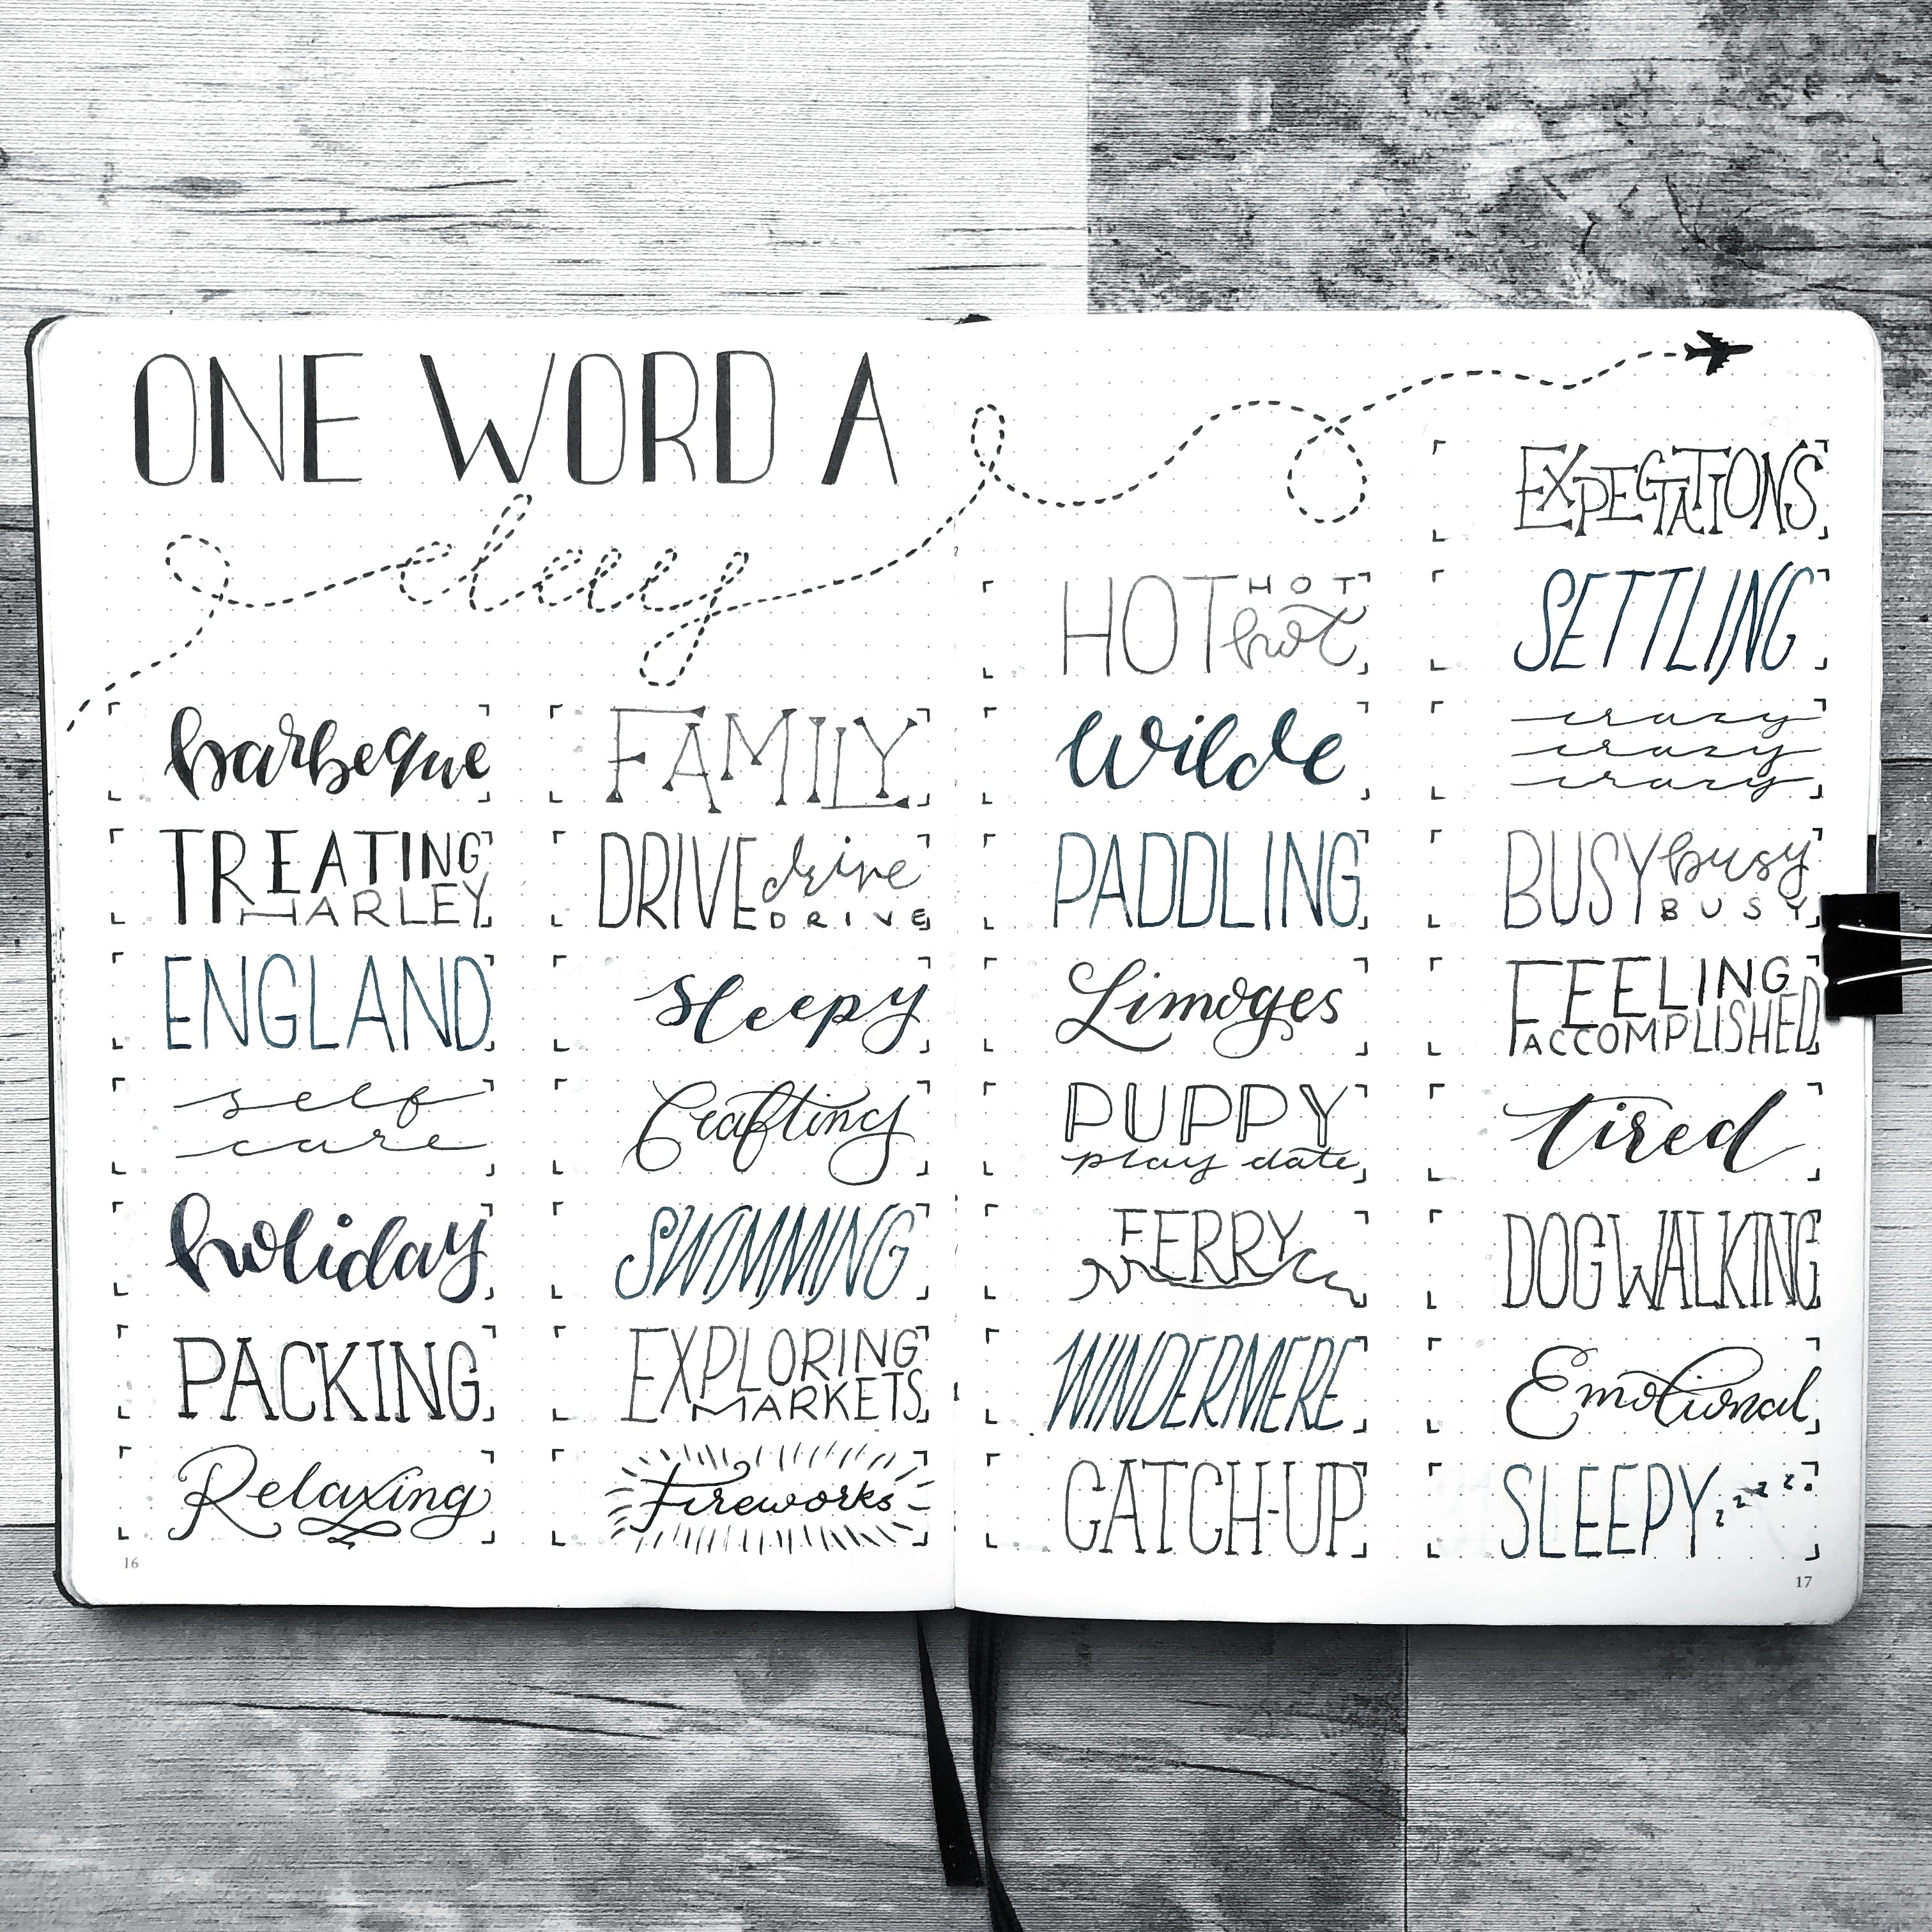 ONE WORD A
day
barbeque
TREATING
HARLEY
ENGLAND
self
care
holiday
PACKING
Relaxing
FAMILY
DRIVE drive
DRIVE
sleepy
Crafting
SWIMMING
EXPLORING
MARKETS
Fireworks
16
HOT HOT
hot
wilde
PADDLING
Limoges
PUPPY
play date
FERRY
WINDERMERE
CATCH-UP
EXPECTATIONS
SETTLING
crazy
crazy
crazy
BUSY busy
BUSY
FEELING
ACCOMPLISHED
tired
DOG WALKING
Emotional
SLEEPY zzzzz
17